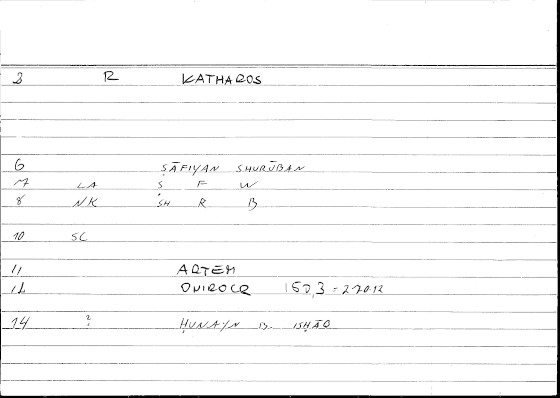 3 R KATHAROS
6 ṢĀFIYAN SHURŪBAN
7 LA Ṣ F W
8 NK SH R B
10 SC
11 ARTEM
12 ONIROCR 150,3 - 22012
14 ? ḤUNAYN B. ISḤĀQ